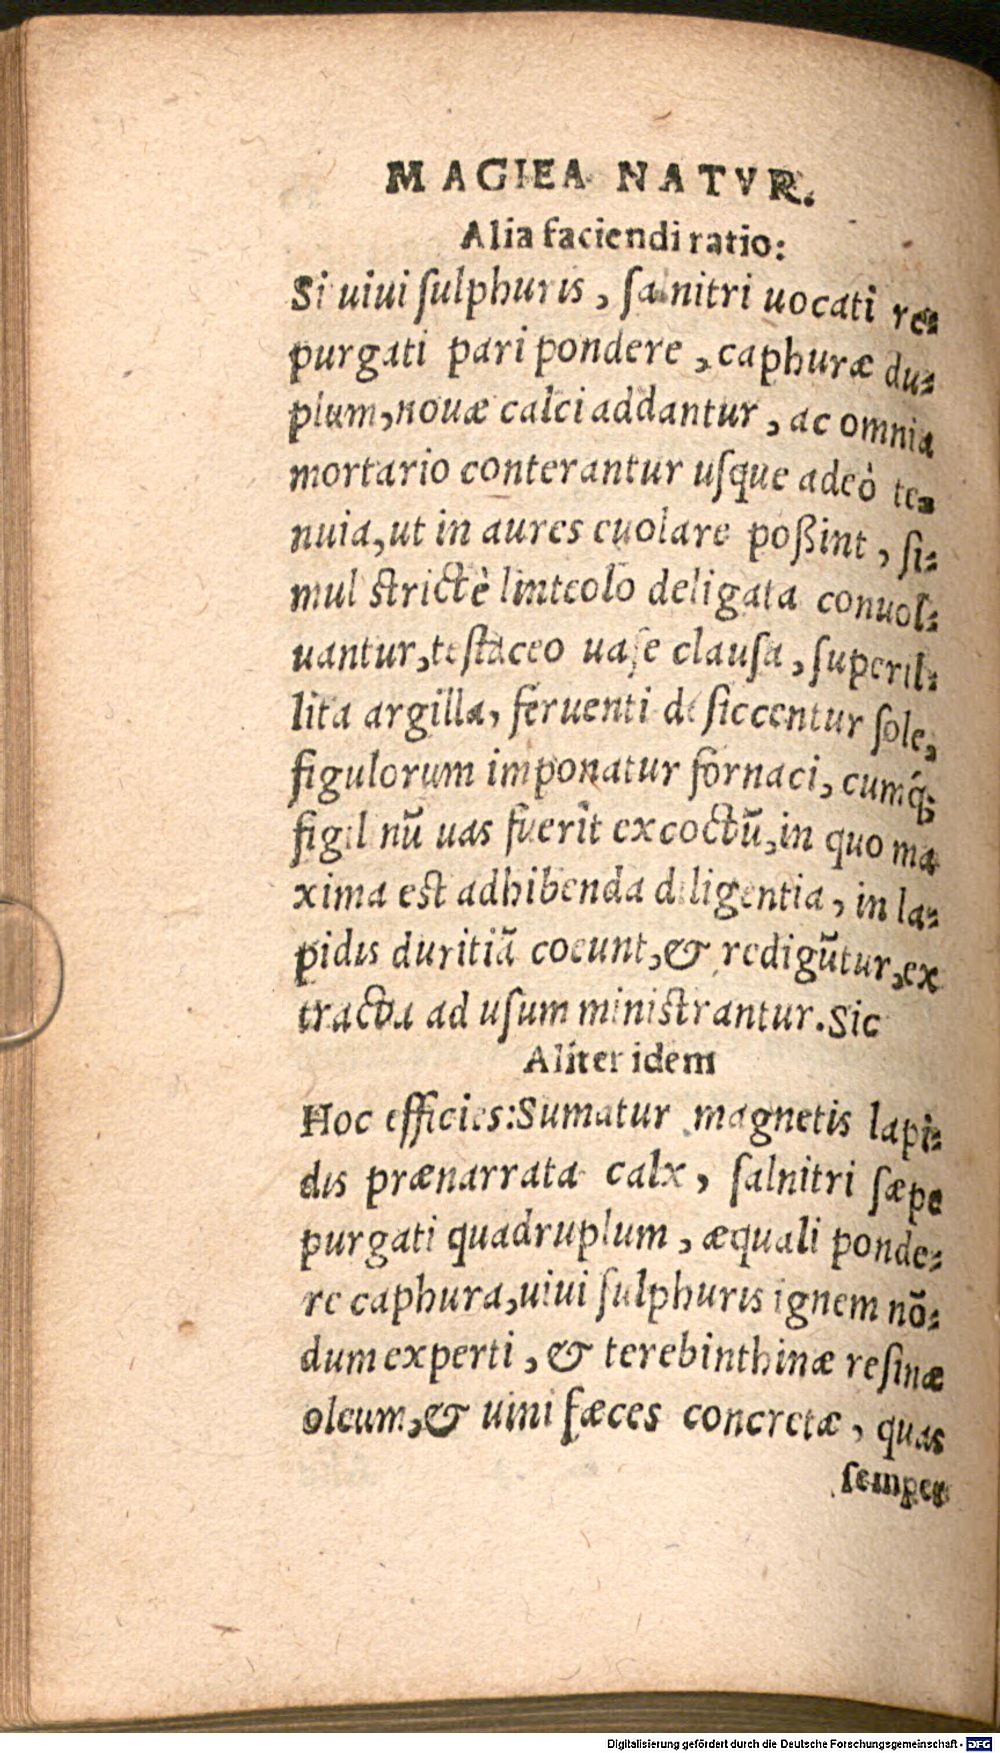 MAGIEA NATVR.
Alia faciendi ratio:
Si uiui ſulphuris, ſalnitri uocati re⸗
purgati pari pondere, caphuræ du⸗
plum, nouæ calci addantur, ac omnia
mortario conterantur uſque adeò te⸗
nuia, ut in aures euolare poßint, ſi⸗
mul strictè linteolo deligata conuol⸗
uantur, teſtaceo uaſe clauſa, ſuperil⸗
lita argilla, feruenti deſiccentur ſole,
figulorum imponatur fornaci, cumq́;
figil nũ uas fuerit excoctũ, in quo ma
xima est adhibenda diligentia, in la⸗
pidis duritiã coeunt, & redigũtur, ex
tracta ad uſum ministrantur. Sic
Aliter idem
Hoc efficies: Sumatur magnetis lapi⸗
dis prænarrata calx, ſalnitri ſæpe
purgati quadruplum, æquali ponde⸗
re caphura, uiui ſulphuris ignem nõ⸗
dum experti, & terebinthinæ reſinæ
oleum, & uini fæces concretæ, quas
ſemper
Digitalisierung gefördert durch die Deutsche Forschungsgemeinschaft - DFG